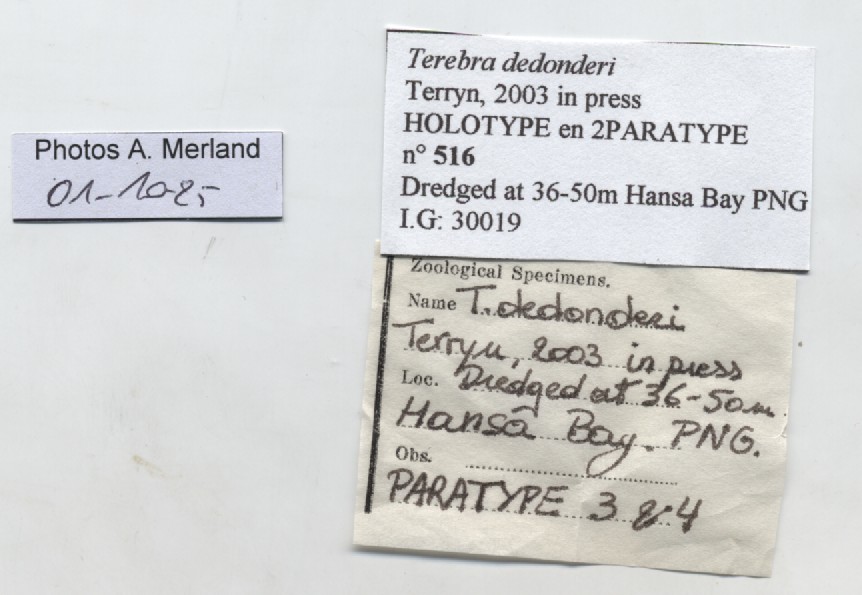 Photos A. Merland
01-10-25
Terebra dedonderi
Terryn, 2003 in press
HOLOTYPE en 2PARATYPE
n° 516
Dredged at 36-50m Hansa Bay PNG
I.G: 30019
Zoological Specimens.
Name T. dedonderi
Terryn, 2003 in press
Loc. Dredged at 36-50m
Hansa Bay. PNG.
Obs.
PARATYPE 3 & 4